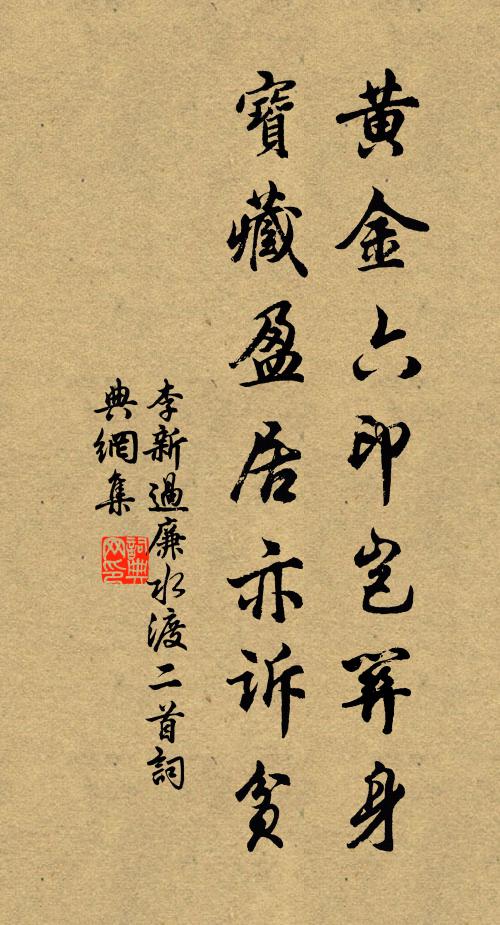 黃金六印豈關身
寶藏盈居亦訴貧
李新過廉水渡二首詞
典網集
詞典
网印